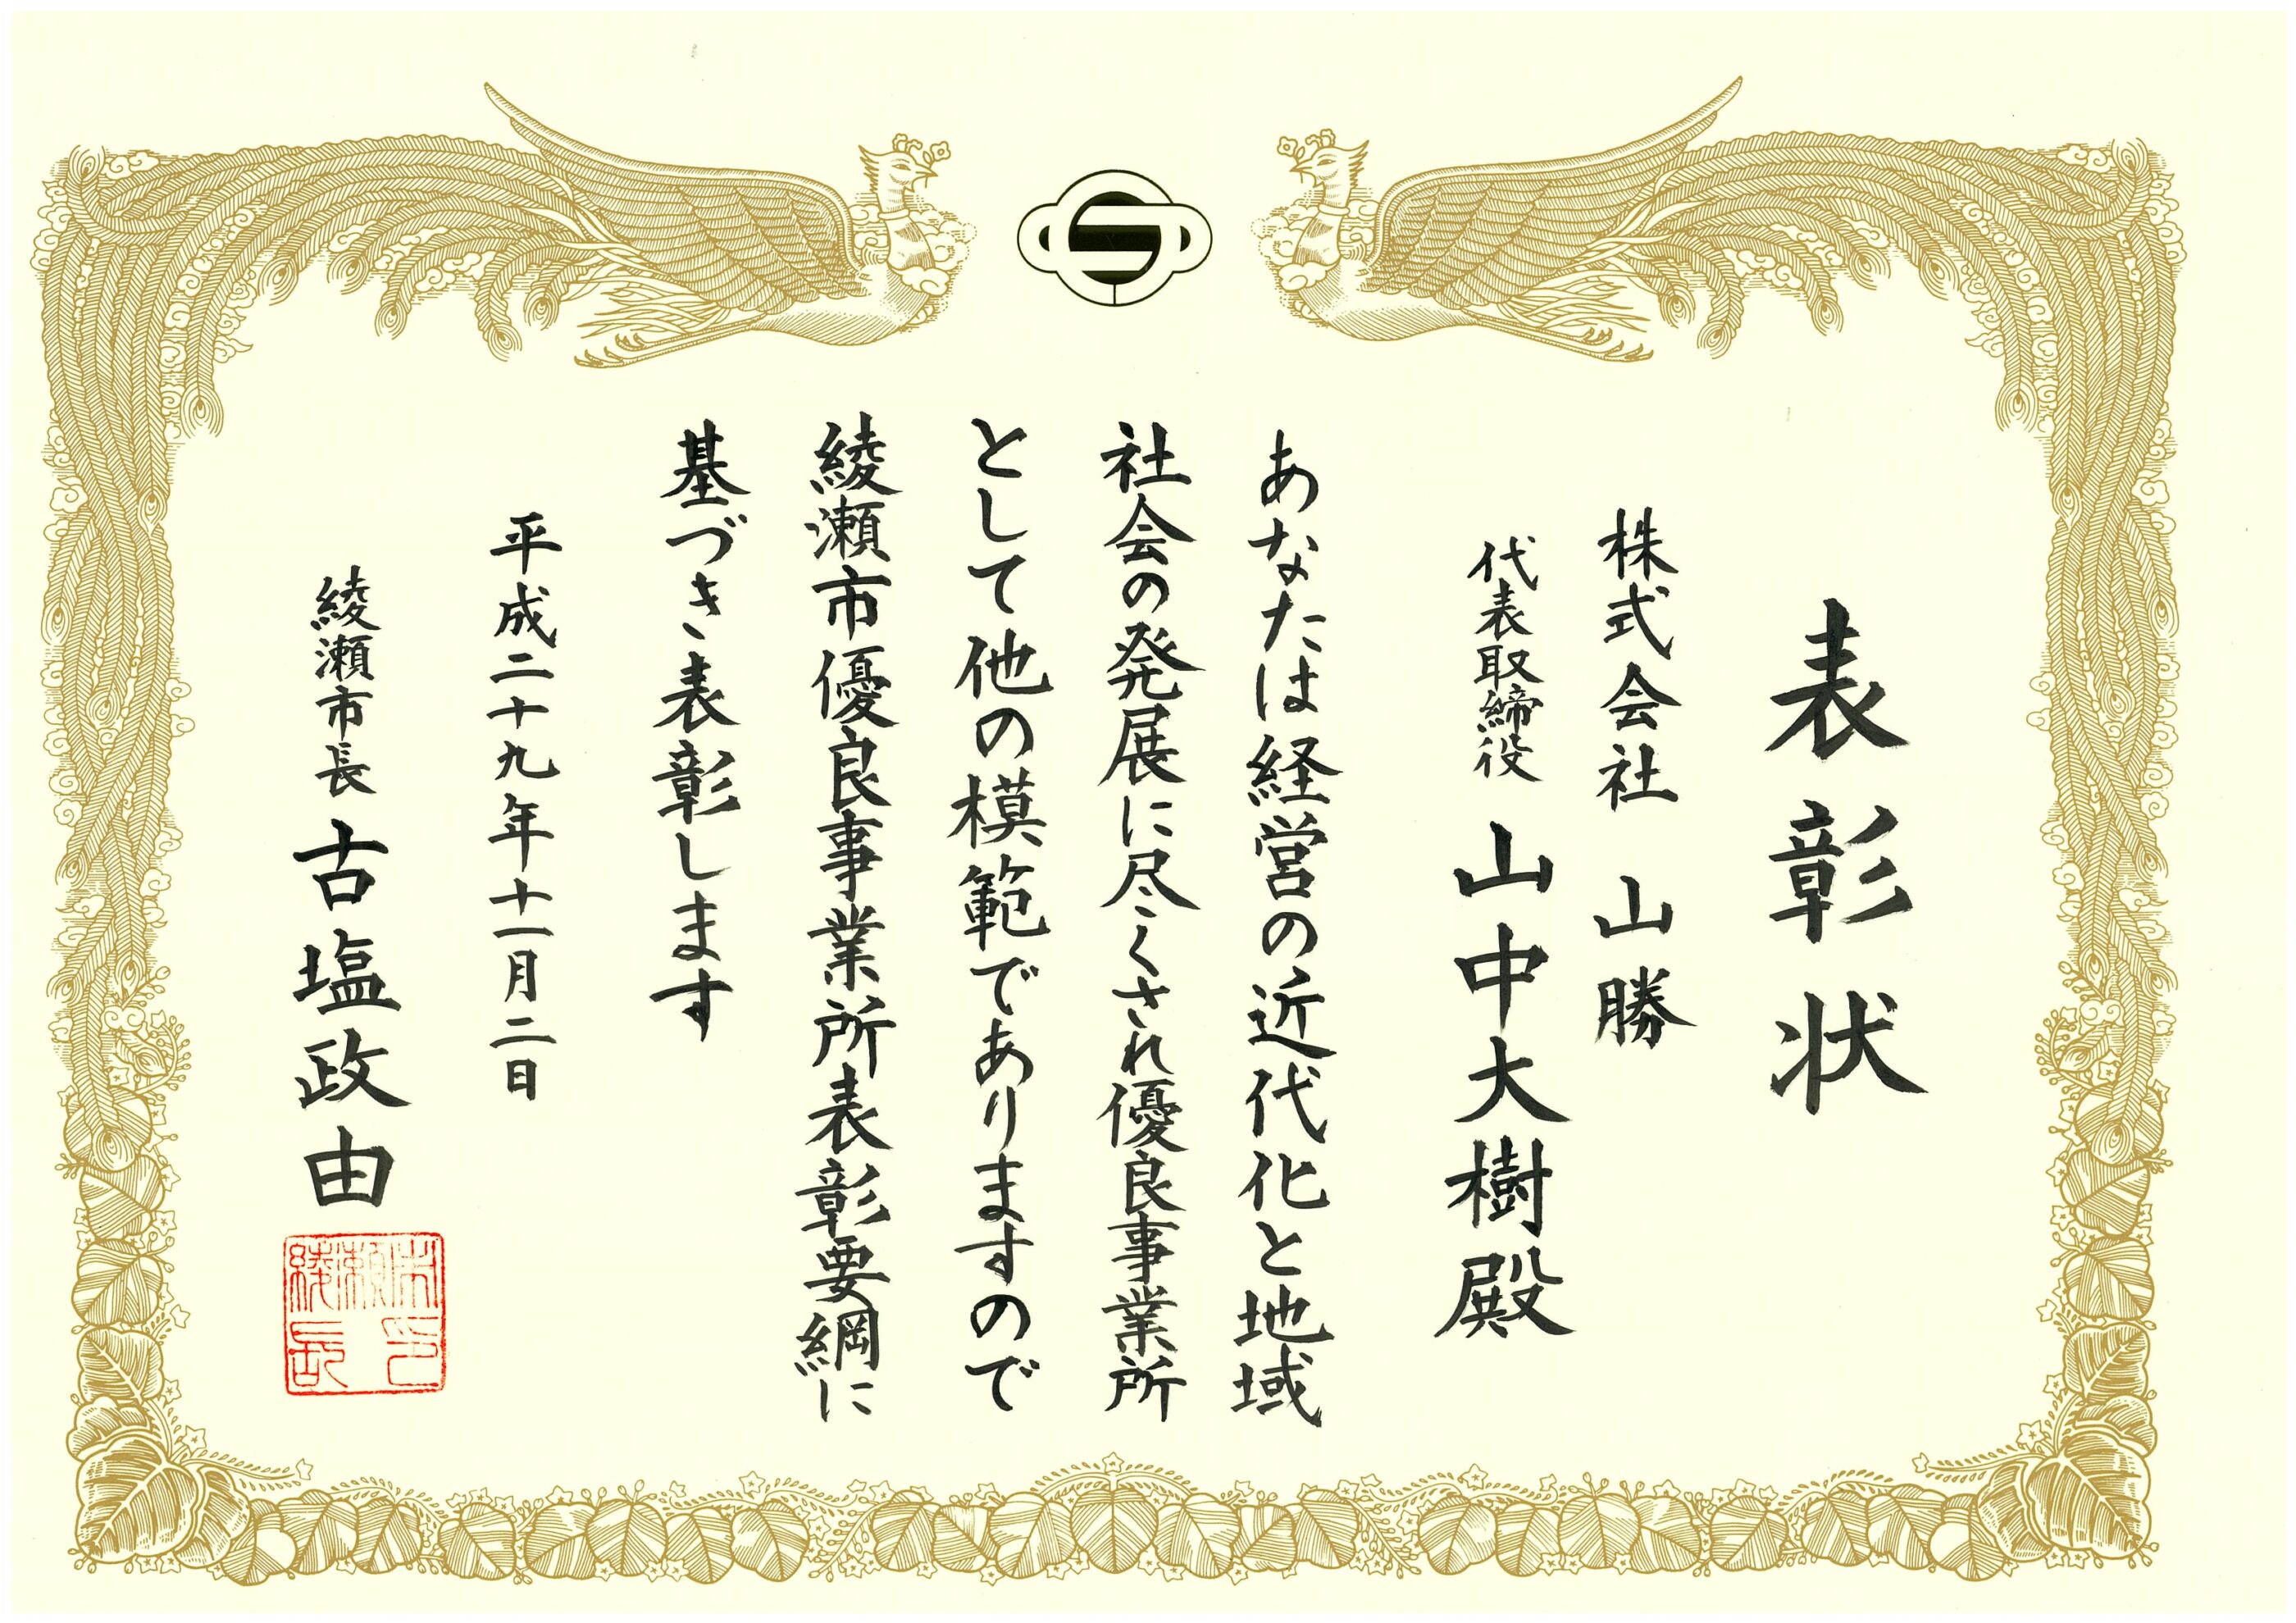 表彰状
株式会社 山勝
代表取締役 山中大樹殿
あなたは経営の近代化と地域
社会の発展に尽くされ優良事業所
として他の模範でありますので
綾瀬市優良事業所表彰要綱に
基づき表彰します
平成二十九年十一月二日
綾瀬市長 古塩政由
綾瀬市長印